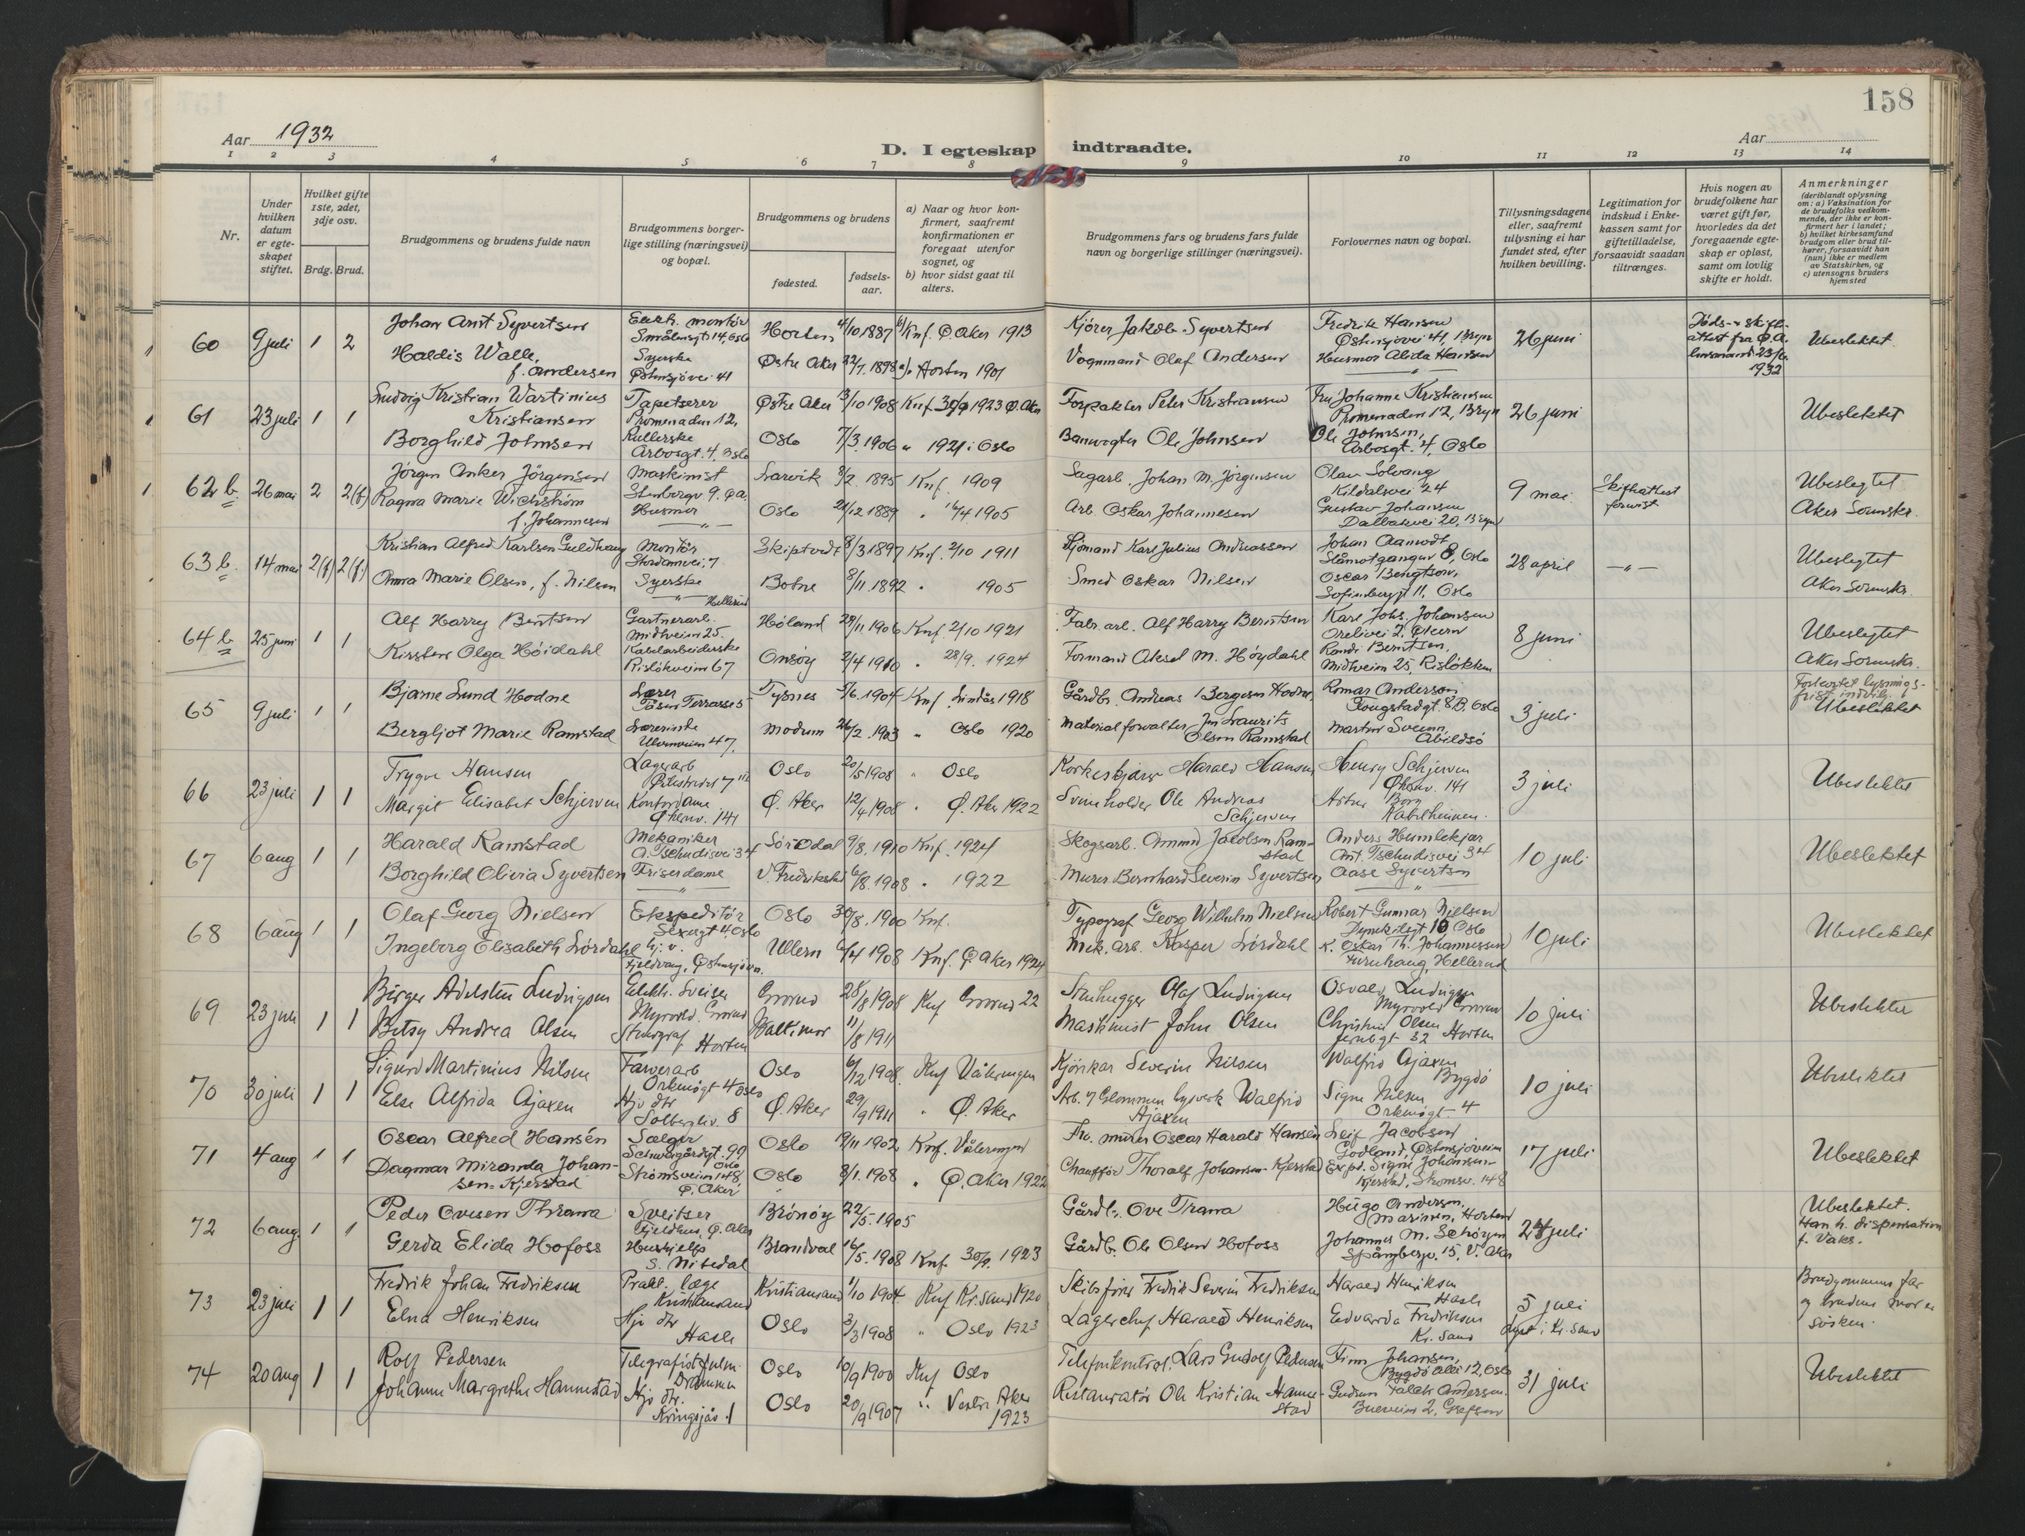 158
Aar 1932
D. I egteskap indtraadte.
Aar
1 2 3 4 5 6 7 8 9 10 11 12 13 14
Nr.
Under hvilken datum er egteskapet stiftet.
Hvilket gifte 1ste, 2det, 3dje osv.
Brdg. Brud.
Brudgommens og brudens fulde navn
Brudgommens borgerlige stilling (næringsvei) og bopæl.
Brudgommens og brudens
fødested.
fødselsaar.
a) Naar og hvor konfirmert, saafremt konfirmationen er foregaat utenfor sognet, og
b) hvor sidst gaat til alters.
Brudgommens fars og brudens fars fulde navn og borgerlige stillinger (næringsvei).
Forlovernes navn og bopæl.
Tillysningsdagene eller, saafremt tillysning ei har fundet sted, efter hvilken bevilling.
Legitimation for indskud i Enkekassen samt for giftetilladelse, forsaavidt saadan tiltrænges.
Hvis nogen av brudefolkene har været gift før, hvorledes da det foregaaende egteskap er opløst, samt om lovlig skifte er holdt.
Anmerkninger
(deriblandt oplysning om: a) Vaksination for de brudefolks vedkommende, der ikke er konfirmert her i landet; b) hvilket kirkesamfund brudgom eller brud tilhører, forsaavidt han (hun) ikke er medlem av Statskirken, og c) utensogns bruders hjemsted
60 9 juli 1 2 Johan Syvertsen Elektr. montør Smålensgt 14, Oslo Horten 4/10 1887 Knf. Ø. Aker 1913 Kjører Jakob Syvertsen Fredrik Hansen Østensjøvei 41, Bryn 26 juni Ubeslektet
Haldis Walle, f. Andersen Syerske Østensjøvei 41 Østre Aker 22/7. 1898 Horten 1901 Vognmand Olaf Andersen Husmor Alida Hansen
61 23 juli 1 1 Ludvig Kristian Wartinius Kristiansen Tapetserer Promenaden 12, Østre Aker 13/10 1908 Knf 30/9 1923 Ø. Aker Forpakter Peter Kristiansen Fru Johanne Kristiansen Promenaden 12, Bryn 26 juni Ubeslektet
Borghild Johnsen Arbosgt. 4, Oslo Oslo 7/3. 1906 " 1921 i Oslo Banevogter Ole Johnsen Ole Johnsen, Arbosgt. 4, Oslo
62 b. 26 mai 2 2(f) Jörgen Anker Jörgensen Maskinist Larvik 8/2. 1895 Knf. 1909 Sagarb. Johan M. Jørgensen Olav Solvang Kildalsvei 24 9 mai Skifteattest forevist Ubeslegtet
Ragna Marie Wichstrøm f. Johannesen Husmor Oslo 1889 " 1905 Arb. Oskar Johannesen Gustav Johansen Dalbakvei 20, Bryn Aker Sorenskr.
63 b. 14 mai 2(f) 2(f) Kristian Alfred Karlsen Guldhaug Montør Skiptvedt 8/3 1897 Knf. 2/10 1911 Sjømand Karl Julius Andreassen Johan Aamodt Oslo 28 april Ubeslegtet
Anna Marie Olsen, f. Nilsen Syerske Botne 8/11 1892 " 1905 Smed Oskar Nilsen Oscar Bengtson, Sofienbergt 11, Oslo Aker Sorenskr.
64 b 25 juni 1 1 Alf Harry Berntsen Gartnerarb. Midtheim 25. Høland 28/11 1906 Knf 2/10 1921 Fabr. arb. Alf Harry Berntsen Karl Johs. Johansen 8 juni Ubeslegtet
Kirsten Olga Høidahl Kabelarbeiderske Risløkveien 67 Onsøy 2/4 1910 " 28/9. 1924 Formand Aksel M. Høydahl Randi Berntsen, Midtheim 25, Risløkken Aker Sorenskr.
65 9 juli 1 1 Bjarne Lund Hodne Lærer Tåsen Terrasse 5 Tysnes 5/6. 1904 Knf. Lindås 1918 Gårdb. Andreas Bergeson Hodne Romar Anderson Oslo 3 juli Forkortet lysningsfrist indvilg. Ubeslektet
Bergljot Marie Ramstad Lærerinde Ulvenveien 47, Modum 26/2. 1903 " Oslo 1920 Materialforvalter Laurits Olsen Ramstad Abildsø
66 23 juli 1 1 Trygve Hansen Lagerarb Oslo 20/5 1908 " Oslo Harald Hansen Henry Schjerven 141 3 juli Ubeslektet
Margit Elisabet Schjerven Kontordame 141 Ø. Aker 12/4 1908 " Ø. Aker 1922 Ole Andreas Schjerven Borg
67 6 aug 1 1 Harald Ramstad Mekaniker A. Tschudisvei 34 Sörodal 9/8. 1910 Knf. 1924 Skogsarb. Amund Jacobsen Ramstad Anders Humlekjær Ant. Tschudisvei 34 10 juli Ubeslektet
Borghild Olivia Syvertsen Friserdame V. Fredrikstad 6/8. 1908 " 1922 Murer Bernhard Severin Syvertsen Aase Syvertsen
68 6 aug 1 1 Olaf Georg Nielsen Ekspeditør Oslo 30/8. 1900 Knf. Typograf Georg Wilhelm Nielsen Robert Gunnar Nielsen Oslo 10 juli Ubeslektet
Ingeborg Elisabeth Lördahl Hj. v. Fjeldvang, Østensjøvn. Ullern 6/4 1908 Knf. Ø. Aker 1924 Mek. arb. Kasper Lördahl K. Oskar Th. Johannessen Furuhaug, Hellerud
69 23 juli 1 1 Birger Adelsten Ludvigsen Elekt. Sveiser Myrvold, Grorud Grorud 28/8 1908 Knf Grorud 22 Stenhugger Olaf Ludvigsen Osvald Ludvigsen Myrvold Grorud 10 juli Ubeslektet
Betsy Andrea Olsen Horten Baltimor 11/8 1911 Maskinist John Olsen Christine Olsen 32 Horten
70 30 juli 1 1 Sigurd Martinius Nilsen Farverarb Orknøgt 4 Oslo Oslo 6/12 1908. Knf Vålerengen Kjörekar Severin Nilsen Walfrid Ajaxen Bygdö 10 juli Ubeslektet
Else Alfrida Ajaxen Hjv dtr Solbergliv. 8 Ø. Aker 29/9 1911 " Ø. Aker Arb. v Glommen Walfrid Ajaxen Signe Nilsen Orknøgt 4
71 4 aug 1 1 Oscar Alfred Hansén Sælger Schweigårdgt. 99 Oslo Oslo 19/11 1902 Knf. Vålerengen Fhv. murer Oscar Harald Hansén Leif Jacobsen Godland, Østensjøveien 17 juli Ubeslektet
Dagmar Miranda Johansen-Kjerstad Strömsveien 148, Ø. Aker Oslo 8/1. 1908 " Ø. Aker 1922 Chauffør Thoralf Johansen-Kjerstad Exp. Signe Johansen-Kjerstad, Strömsv. 148
72 6 aug 1 1 Peder Ovesen Thrana Sveitser Fjeldhus, Ø. Aker Brönöy 22/5. 1905 Gårdb. Ove Trana Hugo Andersen, Marinen, Horten 24 juli Ubeslektet. Han h. dispensation f. Vaks.
Gerda Elida Hofoss Hushjelp S. Nitedal Brandval 16/5. 1908 Knf. 30/9. 1923 Gårdb. Ole Olsen Hofoss Johannes M. Schörgen Spångbergv. 15, V. Aker
73 23 juli 1 1 Fredrik Johan Fredriksen Prakt. læge Kristiansand Kristiansand 1/10 1904 Knf Kr. Sand 1920 Skibsfører Fredrik Severin Fredriksen Harald Henriksen Hasle 5 juli lyst i Kr. Sand Brudgommens far og brudens mor er søsken.
Elna Henriksen Hjv dtr Hasle Oslo 3/3 1908 " Oslo 1923 Lagerchef Harald Henriksen Edvarda Fredriksen Kr. Sand
74 20 aug 1 1 Rolf Pedersen Drammen Oslo 10/9 1900 Knf Oslo Telefonkontrol. Lars Gudolf Pedersen Finn Johansen, Bygdö Alle 12, Oslo 31 juli Ubeslektet
Johanne Margrethe Hannestad Hjv dtr. Kringsjås 1 Oslo 20/9 1907 " Vestre Aker 1923 Restauratør Ole Kristian Hannestad Gudrun Falch Andersen 2, Grefsen